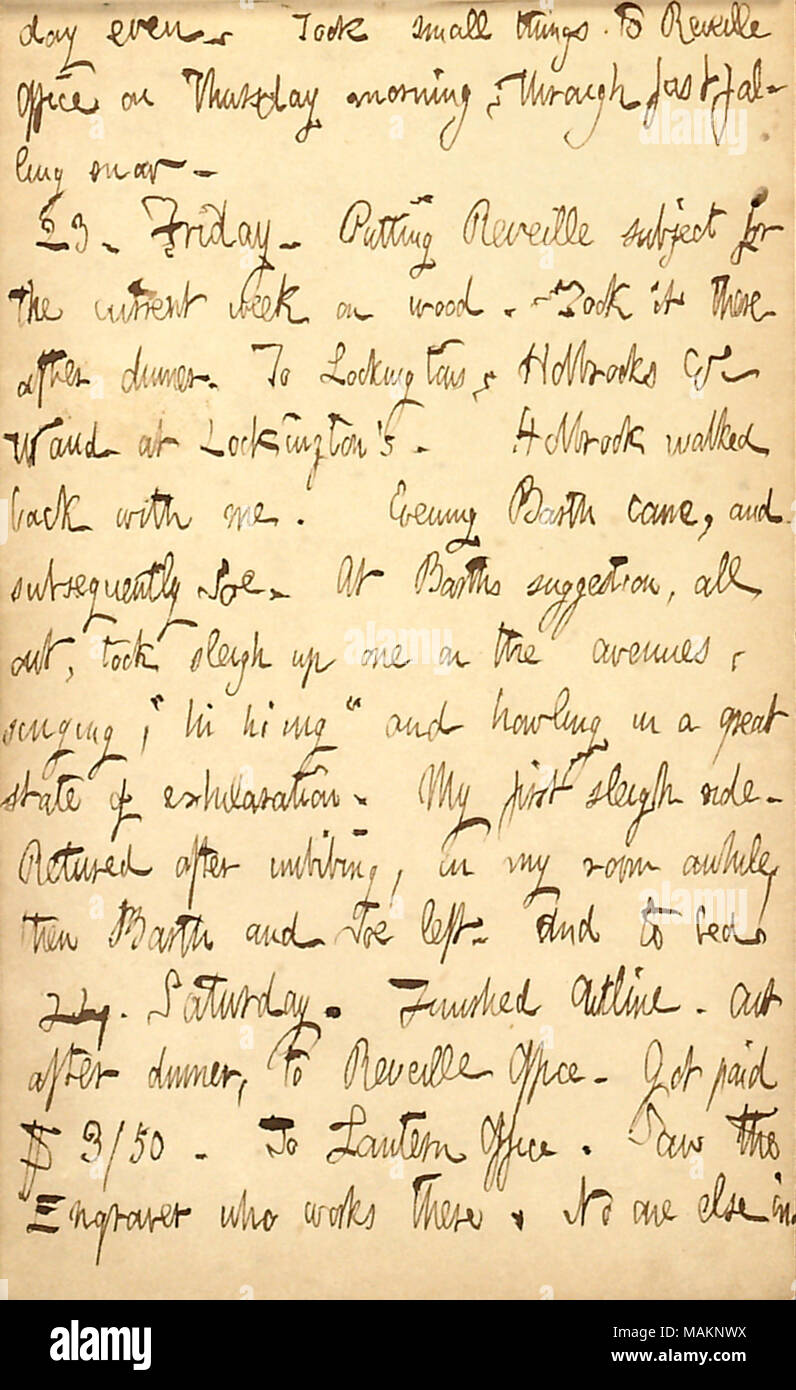 day even. Took small things to Reveille
Office on Thursday morning, through fast fal-
ling snow -
23. Friday. Putting Reveille subject for
the current week on wood. Took it there
after dinner. To Lockingtons, Holbrooks &c
Waud at Lockington's. Holbrook walked
back with me. Evening Barth came, and
subsequently Joe. At Barths suggestion, all
out, took sleigh up one on the avenues,
singing, "hi hi ing" and howling in a great
state of exhilaration. My first sleigh ride.
Retured after imbibing, in my room awhile,
then Barth and Joe left. And to bed.
24. Saturday. Finished outline. Out
after dinner, to Reveille Office. Got paid
$ 3/50. To Lantern Office. Saw the
Engraver who works there. No one else in.
alamy
Image ID: MAKNWX
www.alamy.com